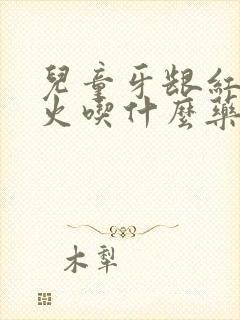 兒童牙龈紅
火喫什麼藥
木犁